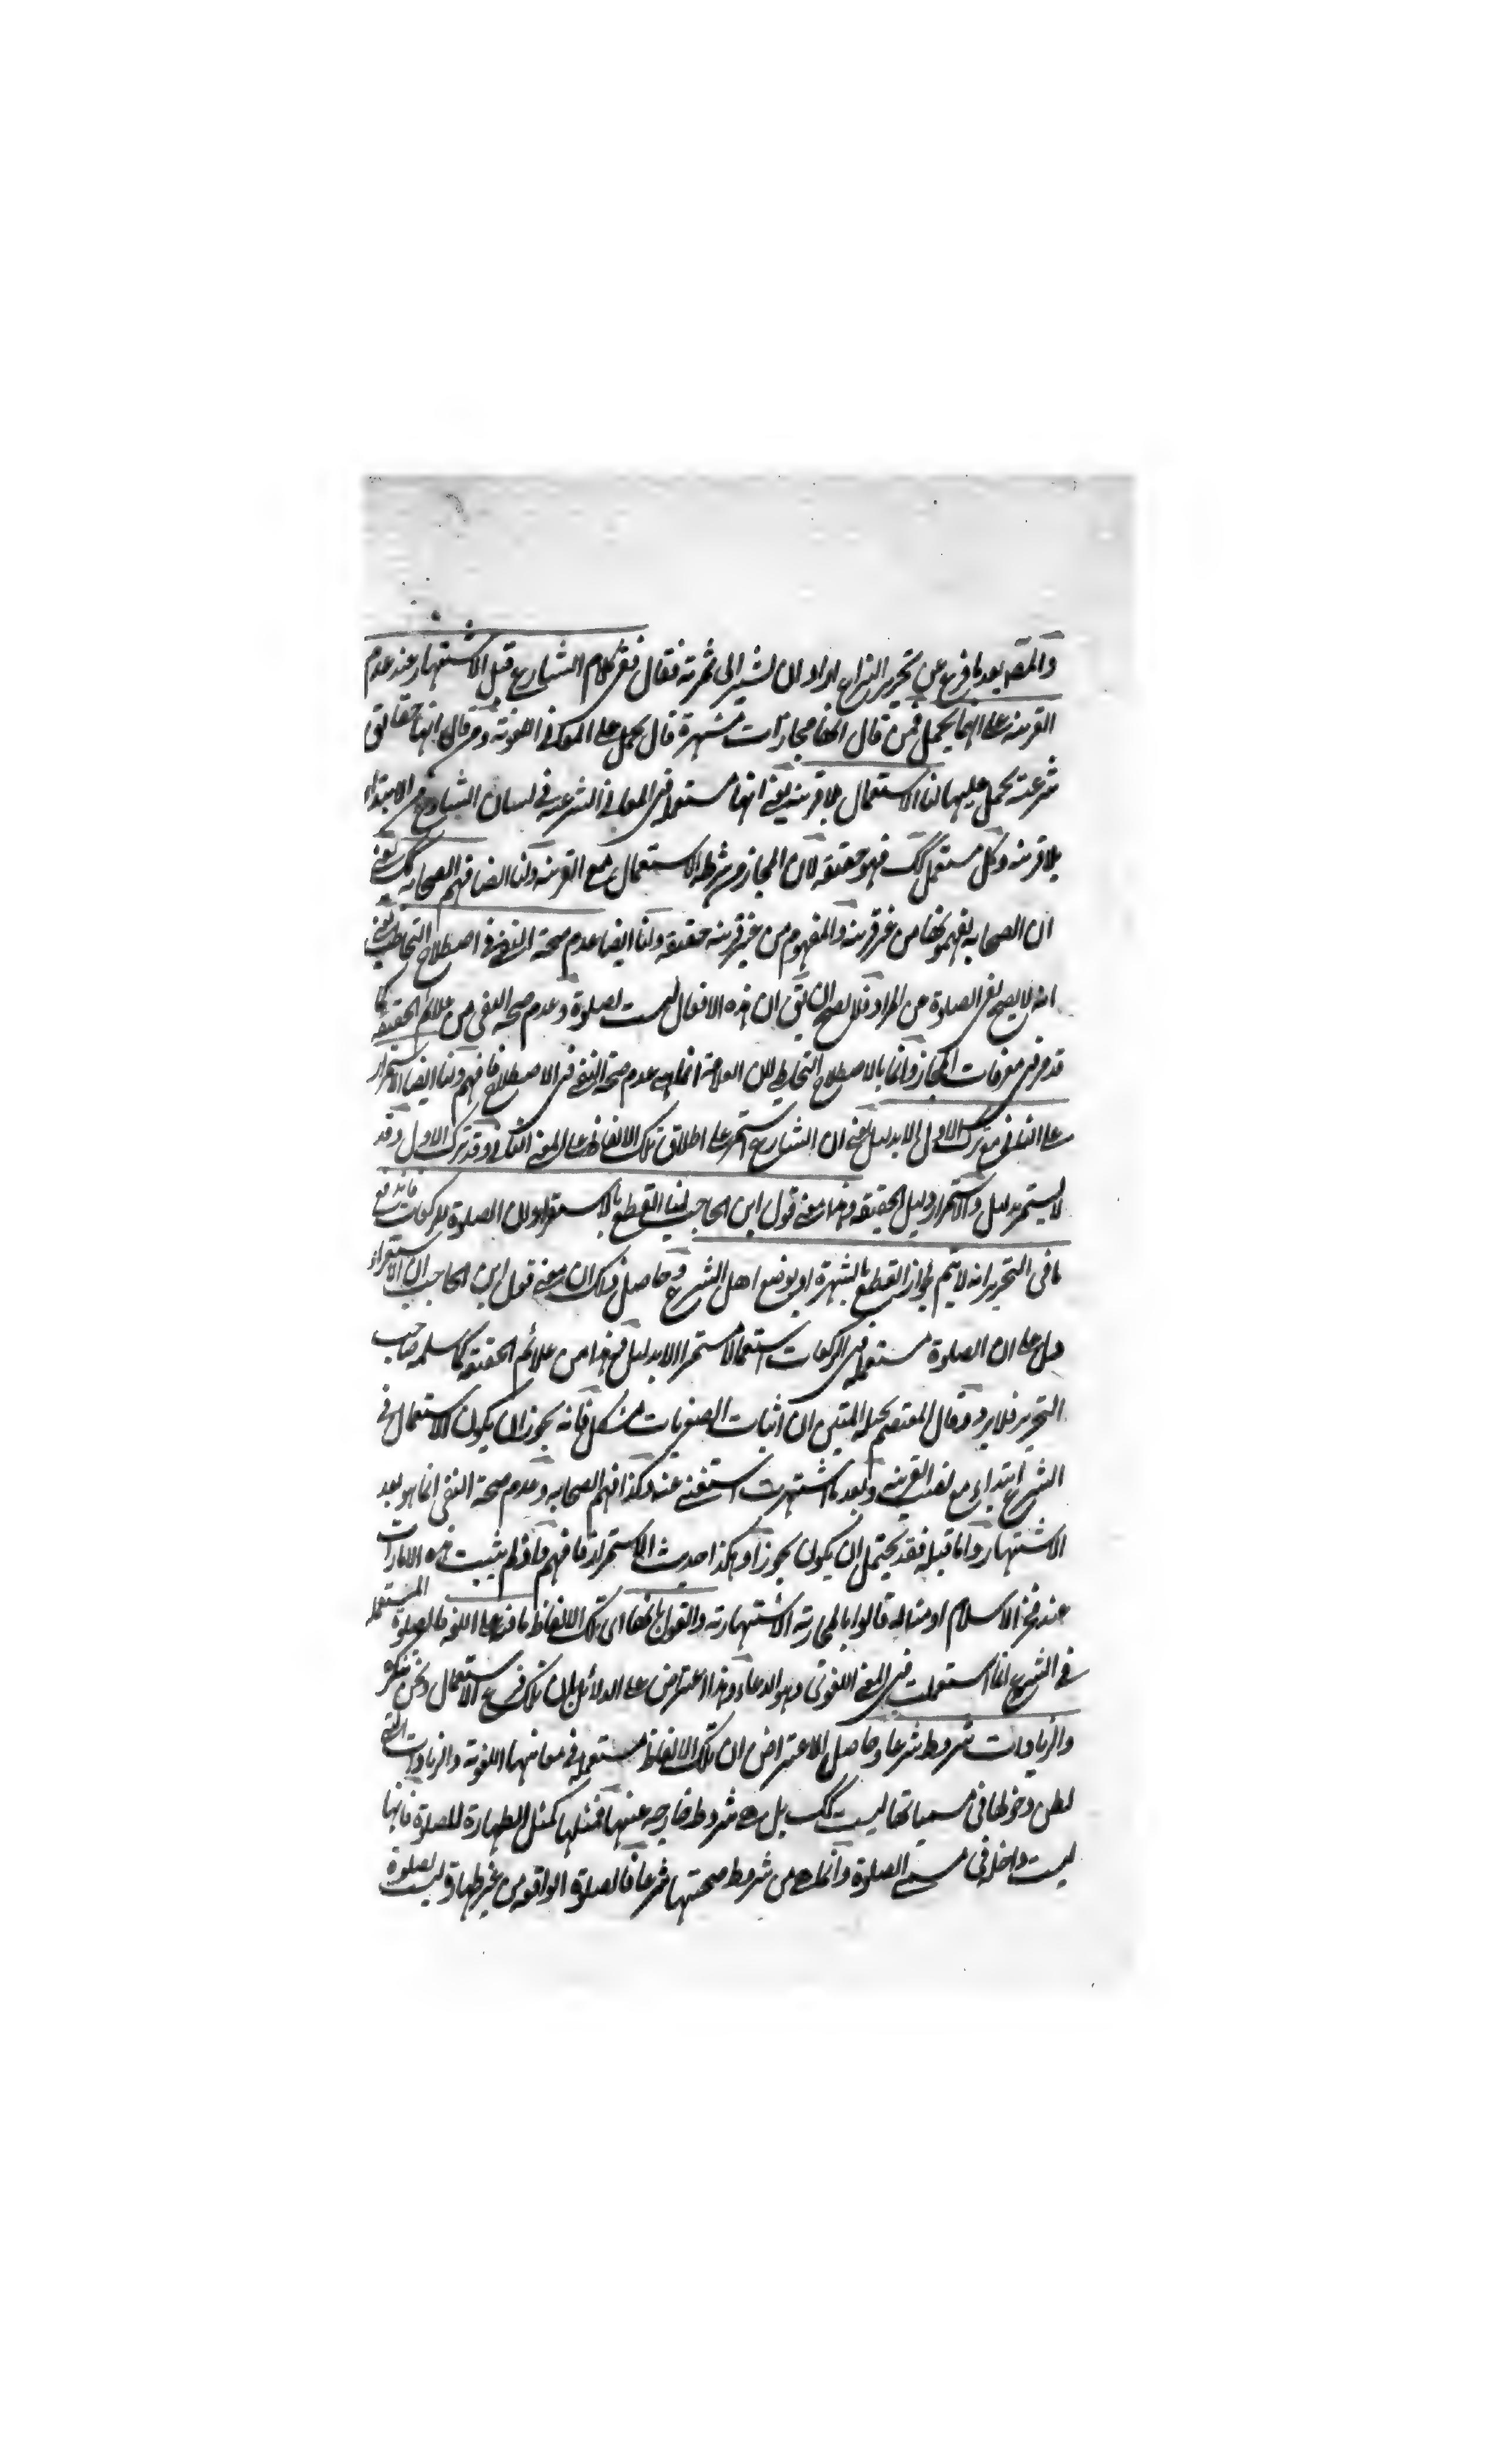 والمصه بعد ما فرغ عن تحرير النزاع اراد ان يشير الى ثمرته فقال ففى كلام الشارع قبل الاشتهار عند عدم
القرينة على ايهما يحمل فمن قال انها مجازات مشتهرة قال يحمل على المعانى اللغوية ومن قال انها حقائق
شرعية يحمل عليها لنا الاستعمال بلا قرينة يعنى انها مستعملة فى المعانى الشرعية فى لسان الشارع من الابتداء
بلا قرينة وكل مستعمل كك فهو حقيقة لان المجاز من شرطه الاستعمال مع القرينة ولنا ايضا فهم الصحابة كك يعنى
ان الصحابة يفهمونها من غير قرينة والمفهوم من غير قرينة حقيقة ولنا ايضا عدم صحة النفى فى اصطلاح التخاطب يعنى
انه لا يصح نفى الصلوة عن المراد فلا يصح ان يق ان هذه الافعال ليست بصلوة وعدم صحة النفى من علائم الحقيقة كما
قد مر فى معرفات المجاز وانما بالاصطلاح التخاطب لان العلامة انما هى عدم صحة النفى فى الاصطلاح فافهم ولنا ايضا الاستمرار
على الثانى مع ترك الاول الا بدليل يعنى ان الشارع استمر على اطلاق تلك الالفاظ على المعنى الثانى وقد ترك الاول وقد
لا يستمر بدليل والاستمرار دليل الحقيقة وهذا معنى قول ابن الحاجب لنا القطع بالاستقراء ان الصلوة للركعات فاندفع
ما فى التحرير انه لا يتم لجواز القطع بالشهرة او بوضع اهل الشرع وحاصل ذلك ان معنى قول ابن الحاجب ان الاستقراء
دل على ان الصلوة مستعملة فى الركعات استعمالا مستمرا الا بدليل فهذا من علائم الحقيقة كما سلمه صاحب
التحرير فلا يرد وقال المعتصم بحبله المتين ان اثبات الصغريات مشكل فانه يجوز ان يكون الاستعمال فى
الشرع ابتداء مع نصب القرينة وبعد ما اشتهرت استغنى عنه وكذا فهم الصحابة وعدم صحة النفى انما هو بعد
الاشتهار واما قبله فقد يحتمل ان يكون تجوزا وهكذا حديث الاستمرار فافهم واذ لم يثبت هذه الامارات
عند فخر الاسلام وامثاله قالوا بالمجازية الاشتهارية والقول بانها اى تلك الالفاظ باقية على اللغة فالصلوة المستعملة
فى الشرع انما استعملت فى المعنى اللغوى وهو الدعاء وهذا اعتراض على الدلائل بان تلك فرع الاستعمال ونحن ننكره
والزيادات شروط شرعا وحاصل الاعتراض ان تلك الالفاظ مستعملة فى معانيها اللغوية والزيادات التى
يظن دخولها فى مسمياتها ليست كك بل هى شروط خارجة عنها فمثلها كمثل الطهارة للصلوة فانها
ليست داخلة فى مسمى الصلوة وانما هى من شروط صحتها شرعا فالصلوة الواقعة من غير طهارة ليست بصلوة